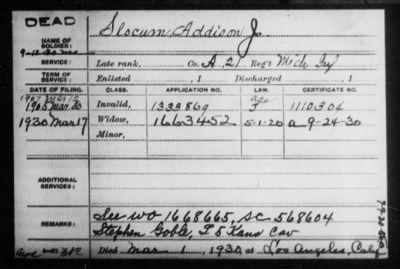 DEAD
NAME OF SOLDIER: Slocum, Addison J.
SERVICE: Late rank, Co. A 21 Reg't Mich Inf
TERM OF SERVICE: Enlisted , 1 Discharged , 1
DATE OF FILING. CLASS. APPLICATION NO. LAW. CERTIFICATE NO.
1907 Mar 12 Age
1905 Mar 20 Invalid, 1332869 1110304
1930 Mar 17 Widow, 1663452 5-1-20 a 9-24-30
Minor,
ADDITIONAL SERVICES:
See WO 1668665, SC-568604
REMARKS: Stephen Goble, I 5 Kans Cav
Died Mar 1, 1930 at Los Angeles, Calif